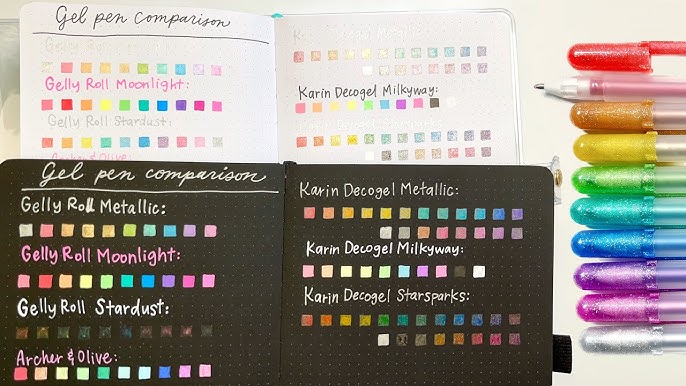 Gel pen comparison
Gelly Roll Metallic:
Gelly Roll Moonlight:
Gelly Roll Stardust:
Archer & Olive:
Karin Decogel Metallic:
Karin Decogel Milkyway:
Karin Decogel Starsparks:
Gel pen comparison
Gelly Roll Metallic:
Gelly Roll Moonlight:
Gelly Roll Stardust:
Archer & Olive:
Karin Decogel Metallic:
Karin Decogel Milkyway:
Karin Decogel Starsparks: